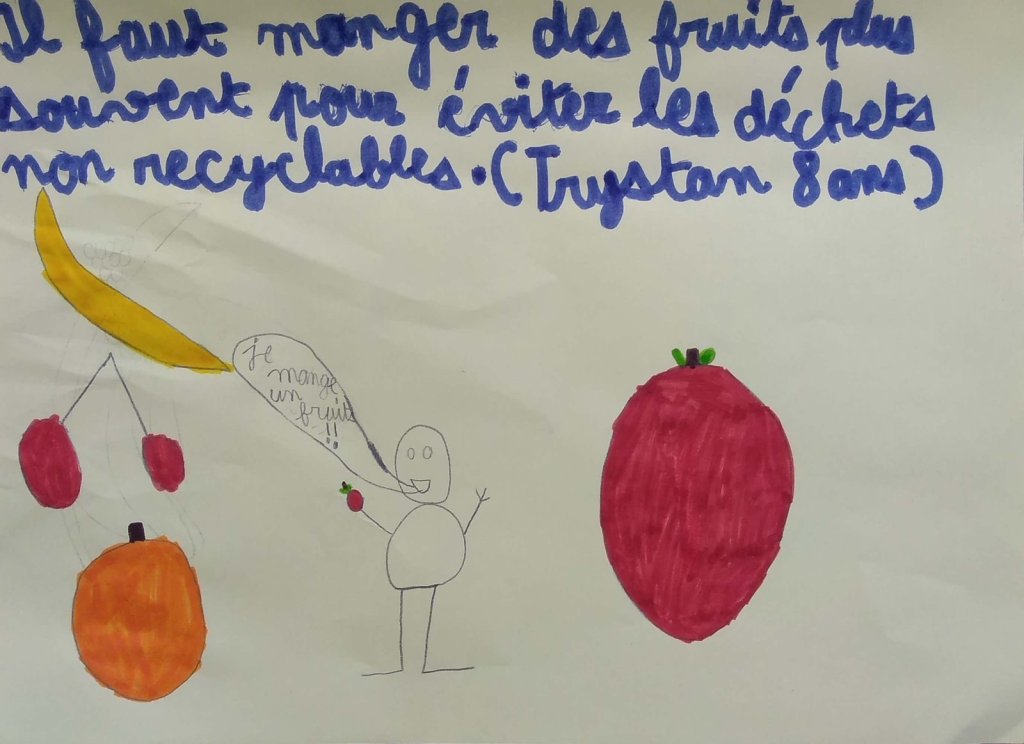 Il faut manger des fruits plus
souvent pour éviter les déchets
non recyclables. (Trystan 8 ans)
je
mange
un
fruits
!!